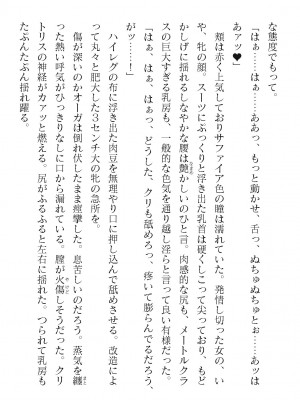 な態度でもって。
「はぁ……はぁ……ああっ、もっと動かせ、舌っ、ぬちゅぬちゅとぉ……あッはあアッ♥」
　頬は赤く上気しておりサファイア色の瞳は濡れていた。発情し切った女の、いや、牝の顔。スーツにぷっくりと浮き出た乳首は硬くしこって尖っており、もどかしげに揺れるしなやかな腰は艶かしいのひと言。肉感的な尻も、メートルクラスの巨大すぎる乳房も、一般的な色気を通り越し淫らと言って良い有様だった。
「はぁ、はぁ、はぁっっ、どうした、クリも舐めろっ、疼いて膨らんでるだろう、がッ……！」
　ハイレグの布に浮き出た肉豆を無理やり口に押し込んで舐めさせる。改造によって丸々と肥大した３センチ大の牝の急所を。
　傷が深いのかオーガは倒れ伏したまま痙攣した。息苦しいのだろう。蒸気を纏った熱い呼気がひっきりなしに口から漏れている。膣が火傷しそうだった。クリトリスの神経がカァッと燃える。尻がふるふると左右に揺れる。つられて乳房もたぷんたぷん揺れ躍る。